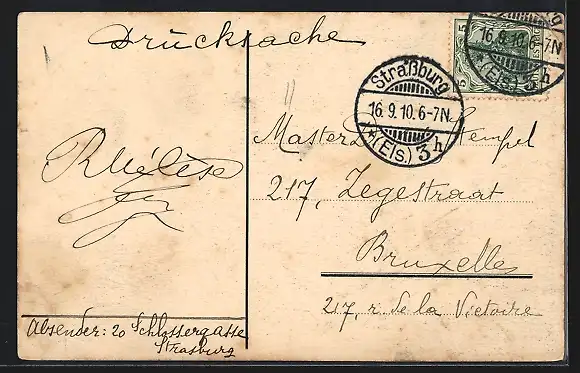 Drucksache
5
5
Straßburg
16.9.10.6-7N.
*(Els.) 3h
16.9.10.6-7N
*(Els.) 3h
Master Stempel
217, Zegestraat
Bruxelles
217, r. de la Victoire
Absender: 20 Schlossergasse
Strasburg